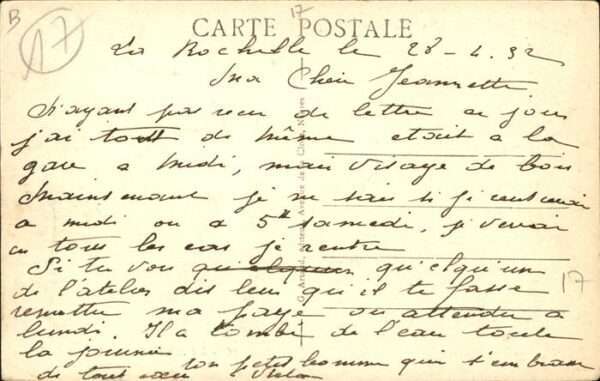 B
17
17
CARTE POSTALE
La Rochelle le 28-4.32
Ma Cher Jeannette
N'ayant pas recu de lettre ce jour
j'ai tout de même etait a la
gare a midi, mais visage de bois
Maintenant je ne sais si je
a midi ou a 5h samedi, je
en tous les cas je rentre
Si tu vou quelqueun qu'elqu'un
de l'atelier dis leur qu'il te fasse
remettre ma paye ou attendre a
lundi. Il a tombé de l'eau toute
la journée
ton petit homme qui t'embrasse
de tout cœur
17